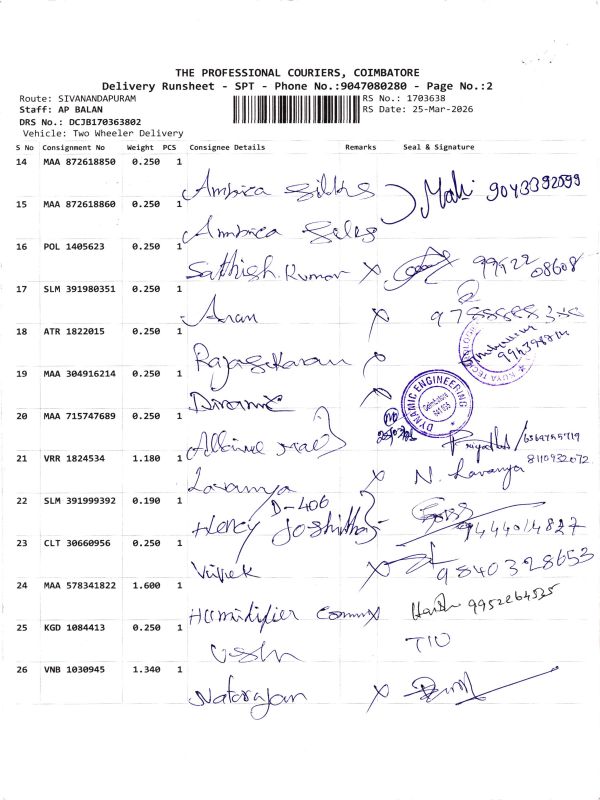 THE PROFESSIONAL COURIERS, COIMBATORE
Delivery Runsheet - SPT - Phone No.:9047080280 - Page No.:2
Route: SIVANANDAPURAM
RS No.: 1703638
Staff: AP BALAN
RS Date: 25-Mar-2026
DRS No.: DCJB170363802
Vehicle: Two Wheeler Delivery
S No Consignment No Weight PCS Consignee Details Remarks Seal & Signature
14 MAA 872618850 0.250 1 Ambica Mahi 9043392099
15 MAA 872618860 0.250 1 Ambica
16 POL 1405623 0.250 1 Sathish Kumar X 99922 08608
17 SLM 391980351 0.250 1 X
18 ATR 1822015 0.250 1 Rajasekaran X
19 MAA 304916214 0.250 1 X DYNAMIC ENGINEERING Coimbatore
20 MAA 715747689 0.250 1
21 VRR 1824534 1.180 1 Lavanya X N. Lavanya 8110932072
22 SLM 391999392 0.190 1 Henry Joshitha D-406 9444014827
23 CLT 30660956 0.250 1 Vivek X 9840328653
24 MAA 578341822 1.600 1 Humidifier 9952264525
25 KGD 1084413 0.250 1
26 VNB 1030945 1.340 1 Natarajan X